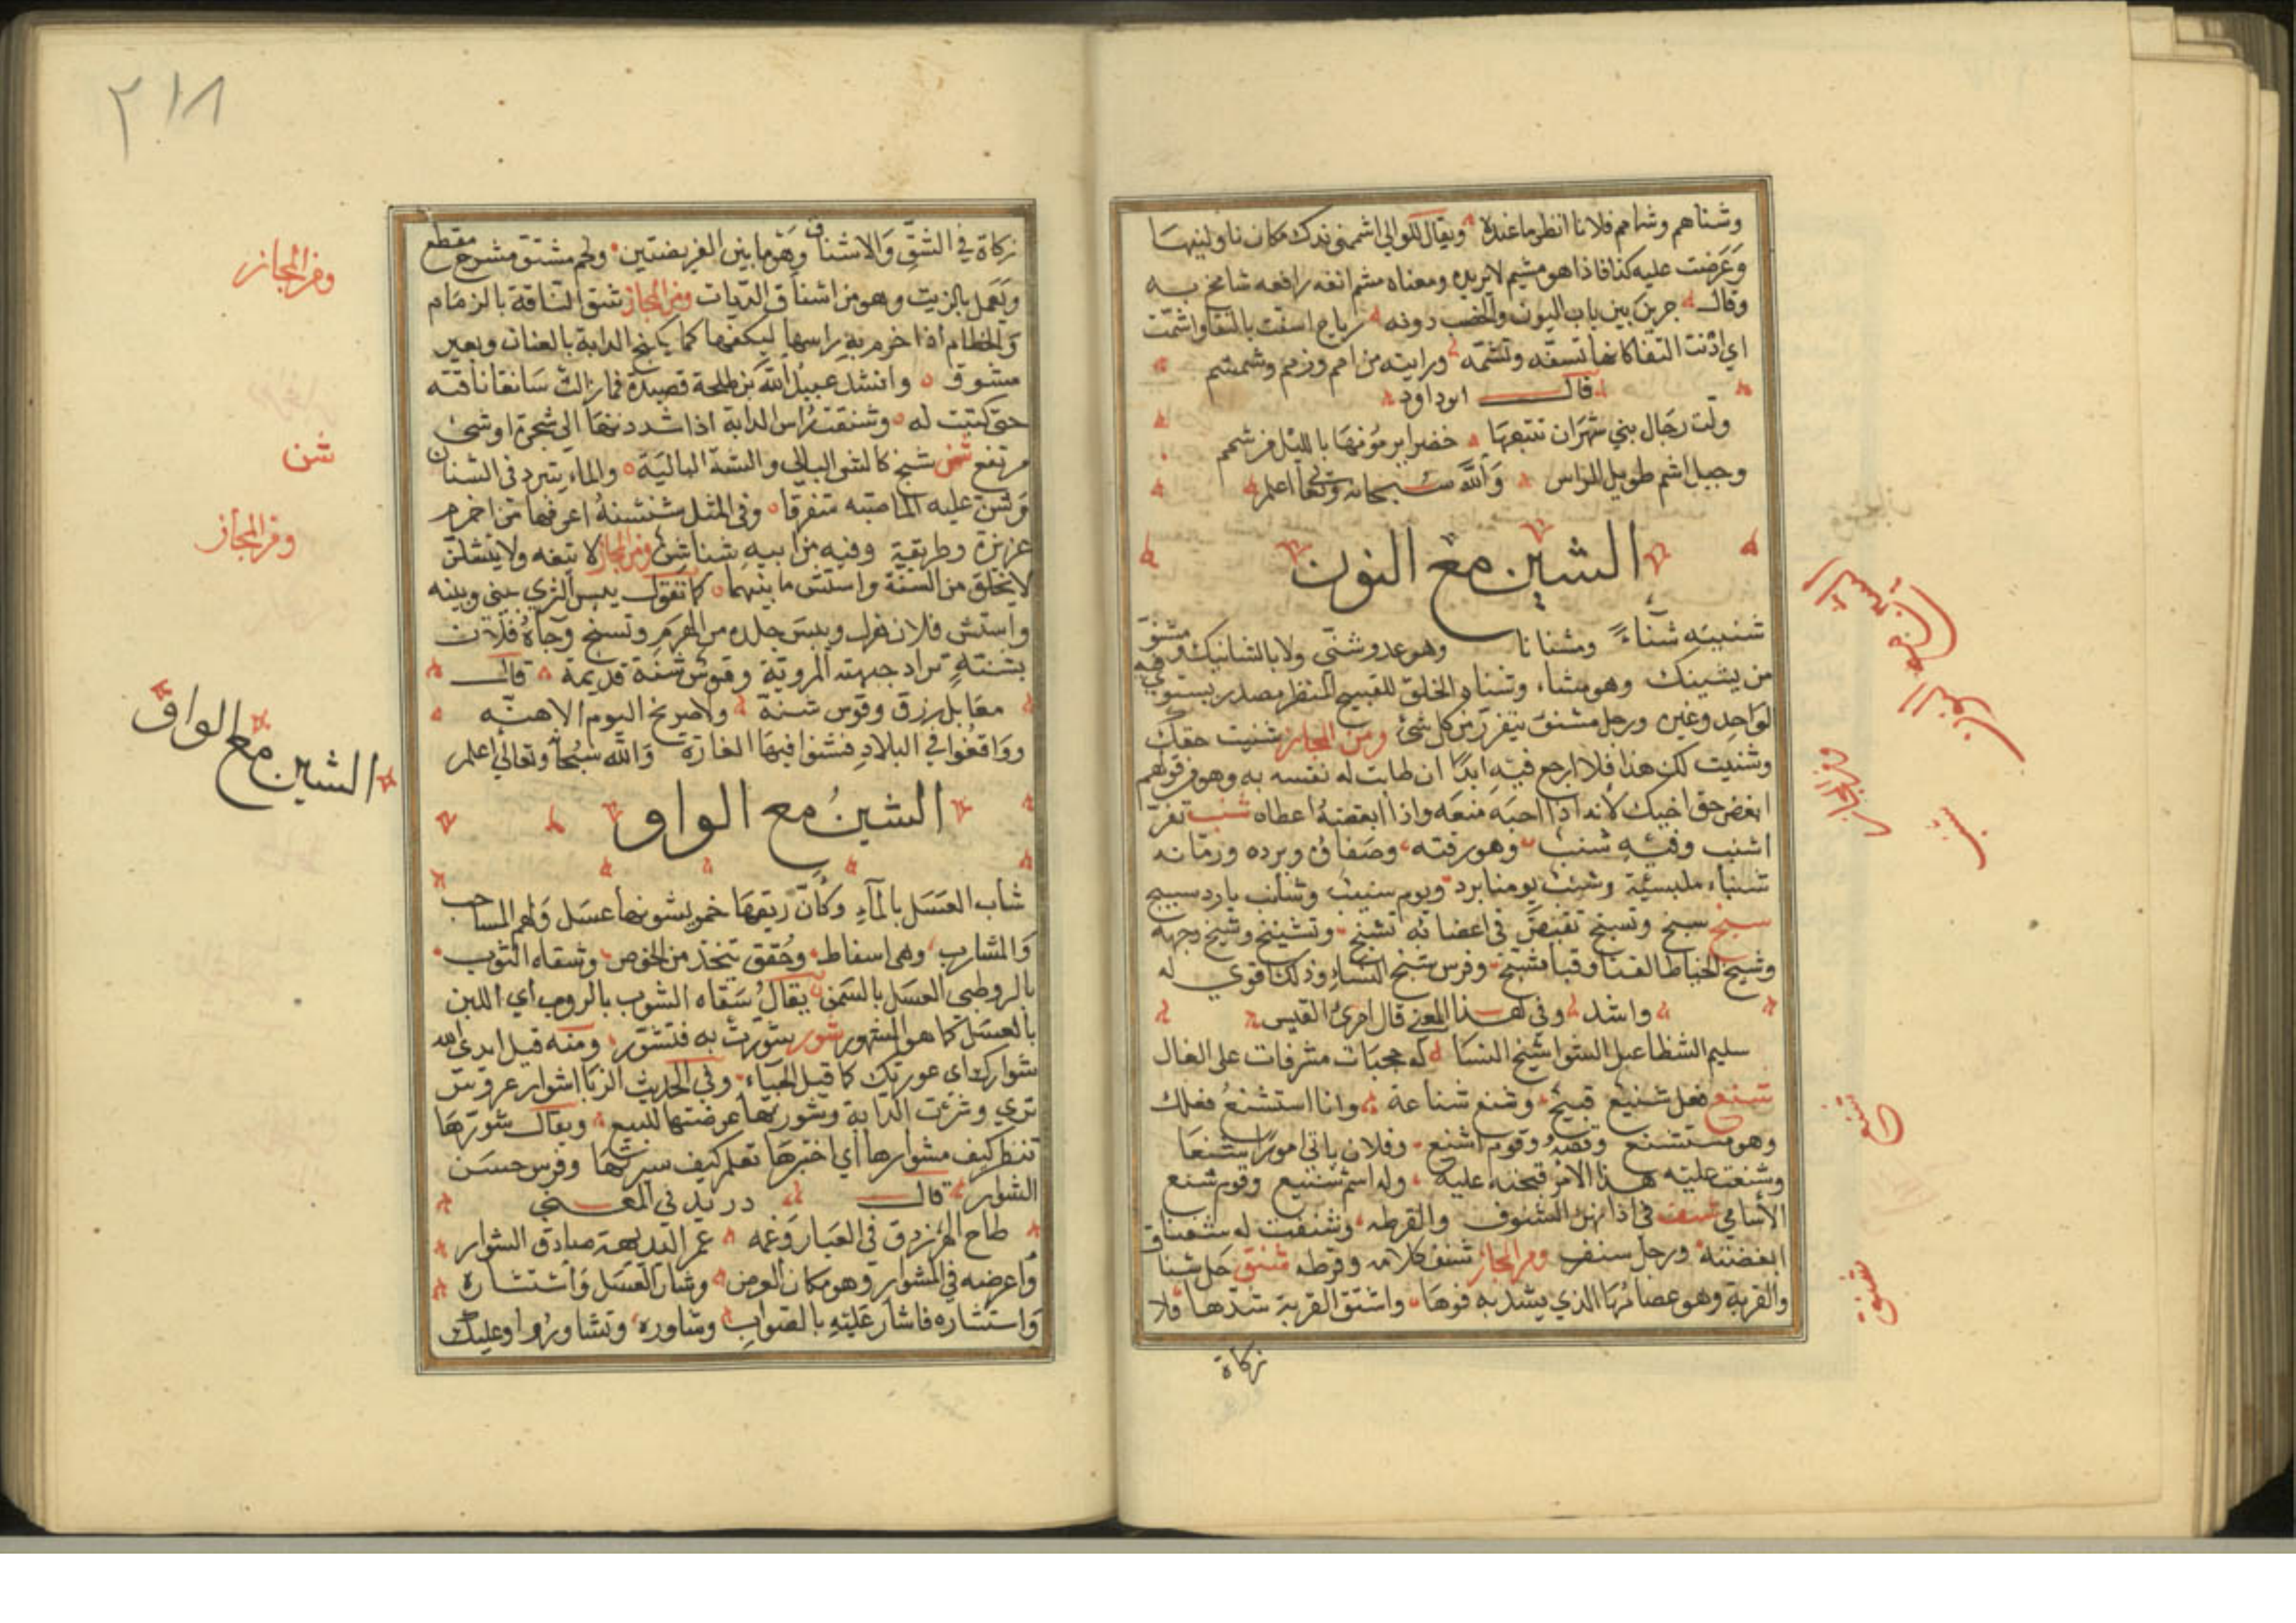 وشناهم وشامم فلانا انظر ما عنده ويقال للوالي اشممني يدك مكان ناولنيها
وعرضت عليه كذا فاذا هو مشم لا يريده ومعناه مشم انفه رافعه شامخ به
وقال جرين بين باب اليون والهضب دونه رياح اسفت بالنقا واشمت
اي ادنت النقا كانها تسفه وتشمه ورايته من امم وزمم وشمم
قال ابو داود
ولت رجال بني شهران تتبعها خضرا يرمونها بالليل من شمم
وجبل اشم طويل الراس والله سبحانه وتعالى اعلم
الشين مع النون
شنيته شناءً ومشنانا وهو عدو شني ولا بالشانيك مشنو وفيه
من يشينك وهو مشناء وشناء الخلق للقبيح المنظر مصدر يستوي فيه
الواحد وغيره ورجل مشنو يتقزز من كل شئ ومن المجاز شنيت حقك
وشنيت لك هذا فلا ارجع فيه ابدا ان طابت له نفسه به وهو من قولهم
ابغض حق اخيك لانه اذا احبه منعه واذا ابغضه اعطاه شنب ثغر
اشنب وفيه شنب وهو رقته وصفاؤه وبرده ورمانه
شنباء مليسية وشنب يومنا برد ويوم شنيب وشانب بارد
شنج شنج وتشنج تقبض في اعضائه تشنج وتشنيج وشنج وجهه
وشنج الخياط القبا وقبا مشنج وفرس شنج النساء وذلك اقوي له
واشد وفي هذا المعنى قال امرئ القيس
سليم الشظا عبل الشوا شنج النسا له حجبات مشرفات على الفال
شنع فعل شنيع قبيح وشنع شناعة وانا استشنع فعلك
وهو مستشنع وقصة وقوم اشنع وفلان ياتي امورا شنعا
وشنعت عليه هذا الامر قبحته عليه وله اسم شنيع وقوم شنع
الاسامي شنف في اذانهن الشنوف والقرطه وشنفت له شنفا
ابغضته ورجل شنف ومن المجاز شنف كلامه وقرطه شنق حل شناق
والقربة وهو عصامها الذي يشد به فوها واشنق القربة شدها فلا
زكاة
الشين مع
النون
ومن المجاز
شنب
شنع
شنق
٢١٨
زكاة في الشنق والاشناق وهو ما بين الفريضتين ولحم مشنق مشرح مقطع
ويعمل بالزيت وهو من اشناق الديات ومن المجاز شنق الناقة بالزمام
والخطام اذا خرم به راسها ليكفها كما يكبح الدابة بالعنان وبعير
مشنوق وانشد عبيد الله بن طلحة قصيدة فما زالت شانقا ناقته
حتى كتبت له وشنقت راس الدابة اذا شددتها الى شجرة او شئ
مرتفع شن شيخ كالشن البالي والشنة البالية والماء يتبرد في الشنان
وشن عليه الما صبه متفرقا وفي المثل شنشنة اعرفها من اخزم
غريزة وطريقة وفيه من ابيه شناشن ومن المجاز لا تتفه ولا يتشان
لا يخلق من السنة واستشن ما بينهما كما تقول يبس الثري بيني وبينه
واستشن فلان هزل ويبس جلده من الهرم وتشنج وجاه فلان
بشنته تراد جبهته المروية وقوس شنة قديمة قال
معابل زرق وقوس شنة ولا صريخ اليوم الا هنه
وواقعوا في البلاد فشنوا فيها الغارة والله سبحانه وتعالى اعلم
الشين مع الواو
شاب العسل بالماء وكان ريقها خمر يشوبها عسل ولهم المساحب
والمشارب وهي اسفاط وحقق تتخذ من الخوص وسقاه الثوب
بالروطبي العسل بالسمن يقال سقاه الشوب بالروب اي اللبن
بالعسل كما هو المشهور شور شورت به فتشور ومنه قيل ابدى الله
شوارك اي عورتك كما قيل الحياء وفي الحديث الزبا اشوار عروس
تري وشرت الدابة وشورتها عرضتها للبيع ويقال شورها
تنظر كيف مشوارها اي اختبرها تعلم كيف سيرتها وفرس حسن
الشوار قال دريد في المعنى
طاح الفرزدق في الغبار وغمه غمر البديهة صادق الشوار
واعرضه في المشوار وهو مكان العرض وشار العسل واشتشاره
واستشاره فاشار عليه بالصواب وشاوره وتشاوروا وعليك
ومن المجاز
شن
ومن المجاز
الشين مع الواو